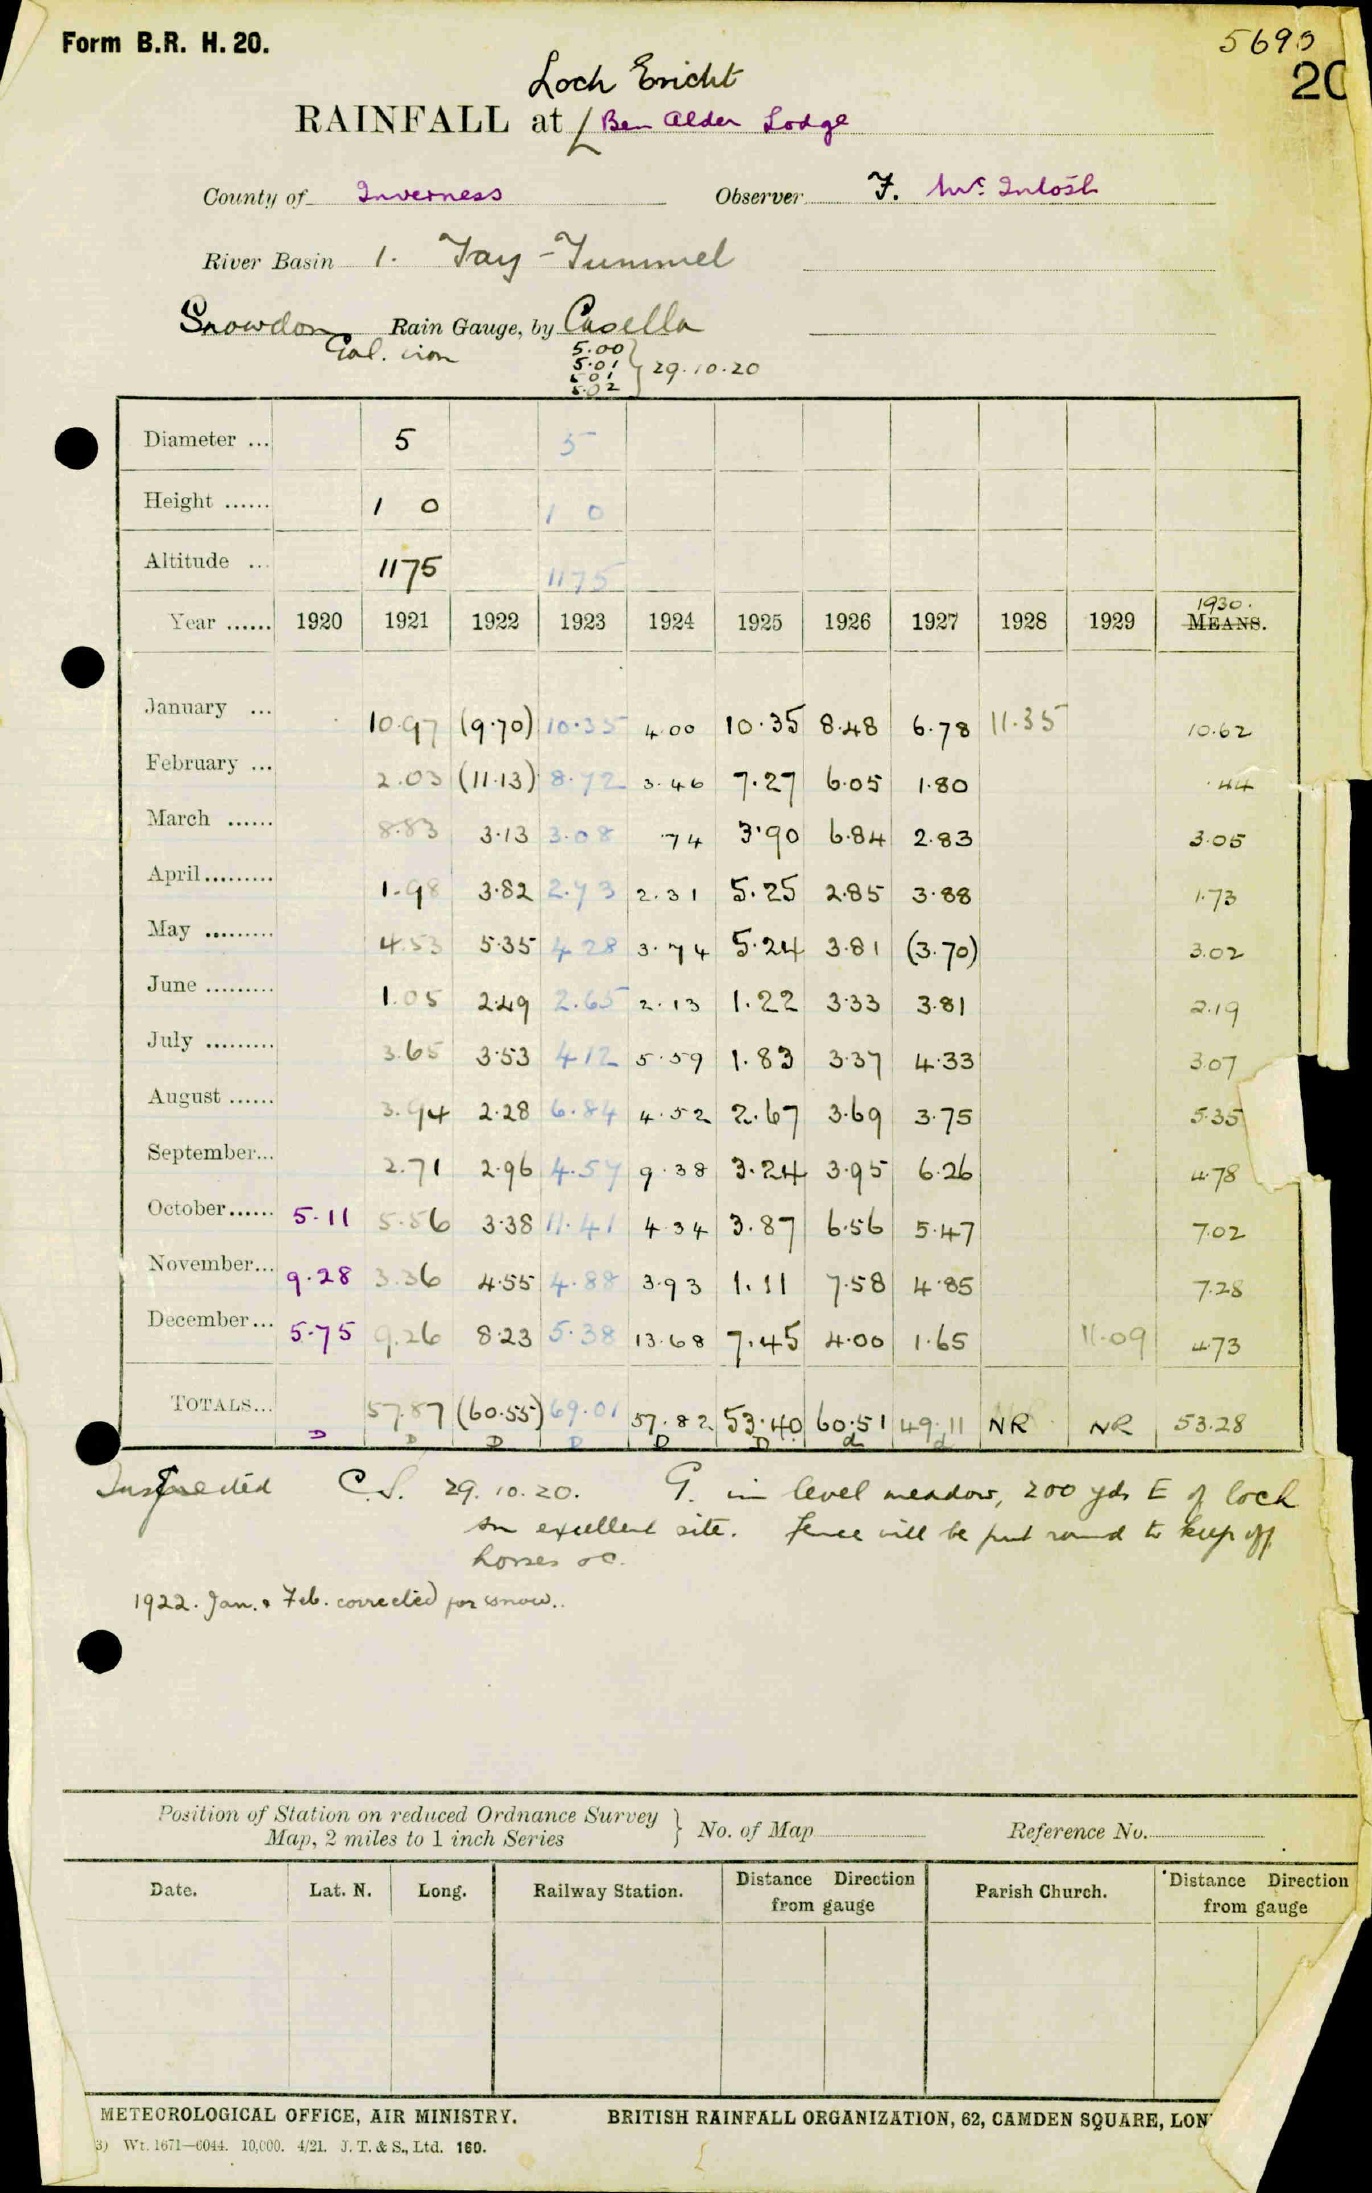 Form B.R. H. 20.
5690
20
Loch Ericht
RAINFALL at Ben Alder Lodge
County of Inverness Observer F. McIntosh
River Basin 1. Tay - Tummel
Snowdon Rain Gauge, by Casella
Gal. iron
5.00
5.01
5.01
5.02
} 29.10.20
Diameter ... 5 5
Height ...... 1 0 1 0
Altitude ... 1175 1175
1930.
Year ...... 1920 1921 1922 1923 1924 1925 1926 1927 1928 1929 MEANS.
January ... 10.97 (9.70) 10.35 4.00 10.35 8.48 6.78 11.35 10.62
February ... 2.03 (11.13) 8.72 3.46 7.27 6.05 1.80 .44
March ...... 8.83 3.13 3.08 .74 3.90 6.84 2.83 3.05
April......... 1.98 3.82 2.73 2.31 5.25 2.85 3.88 1.73
May ......... 4.53 5.35 4.28 3.74 5.24 3.81 (3.70) 3.02
June ......... 1.05 2.49 2.65 2.13 1.22 3.33 3.81 2.19
July ......... 3.65 3.53 4.12 5.59 1.83 3.37 4.33 3.07
August ...... 3.94 2.28 6.84 4.52 2.67 3.69 3.75 5.35
September... 2.71 2.96 4.57 9.38 3.24 3.95 6.26 4.78
October...... 5.11 5.56 3.38 11.41 4.34 3.87 6.56 5.47 7.02
November... 9.28 3.36 4.55 4.88 3.93 1.11 7.58 4.85 7.28
December... 5.75 9.26 8.23 5.38 13.68 7.45 4.00 1.65 11.09 4.73
TOTALS... 57.87 (60.55) 69.01 57.82 53.40 60.51 49.11 NR NR 53.28
D D D D D D d d
Inspected C.S. 29.10.20. G. in level meadow, 200 yds E of loch
An excellent site. Fence will be put round to keep off
horses &c.
1922. Jan. & Feb. corrected for snow..
Position of Station on reduced Ordnance Survey
Map, 2 miles to 1 inch Series } No. of Map Reference No.
Date. Lat. N. Long. Railway Station. Distance Direction from gauge Parish Church. Distance Direction from gauge
METEOROLOGICAL OFFICE, AIR MINISTRY. BRITISH RAINFALL ORGANIZATION, 62, CAMDEN SQUARE, LON
3) Wt. 1671—6044. 10,000. 4/21. J. T. & S., Ltd. 160.